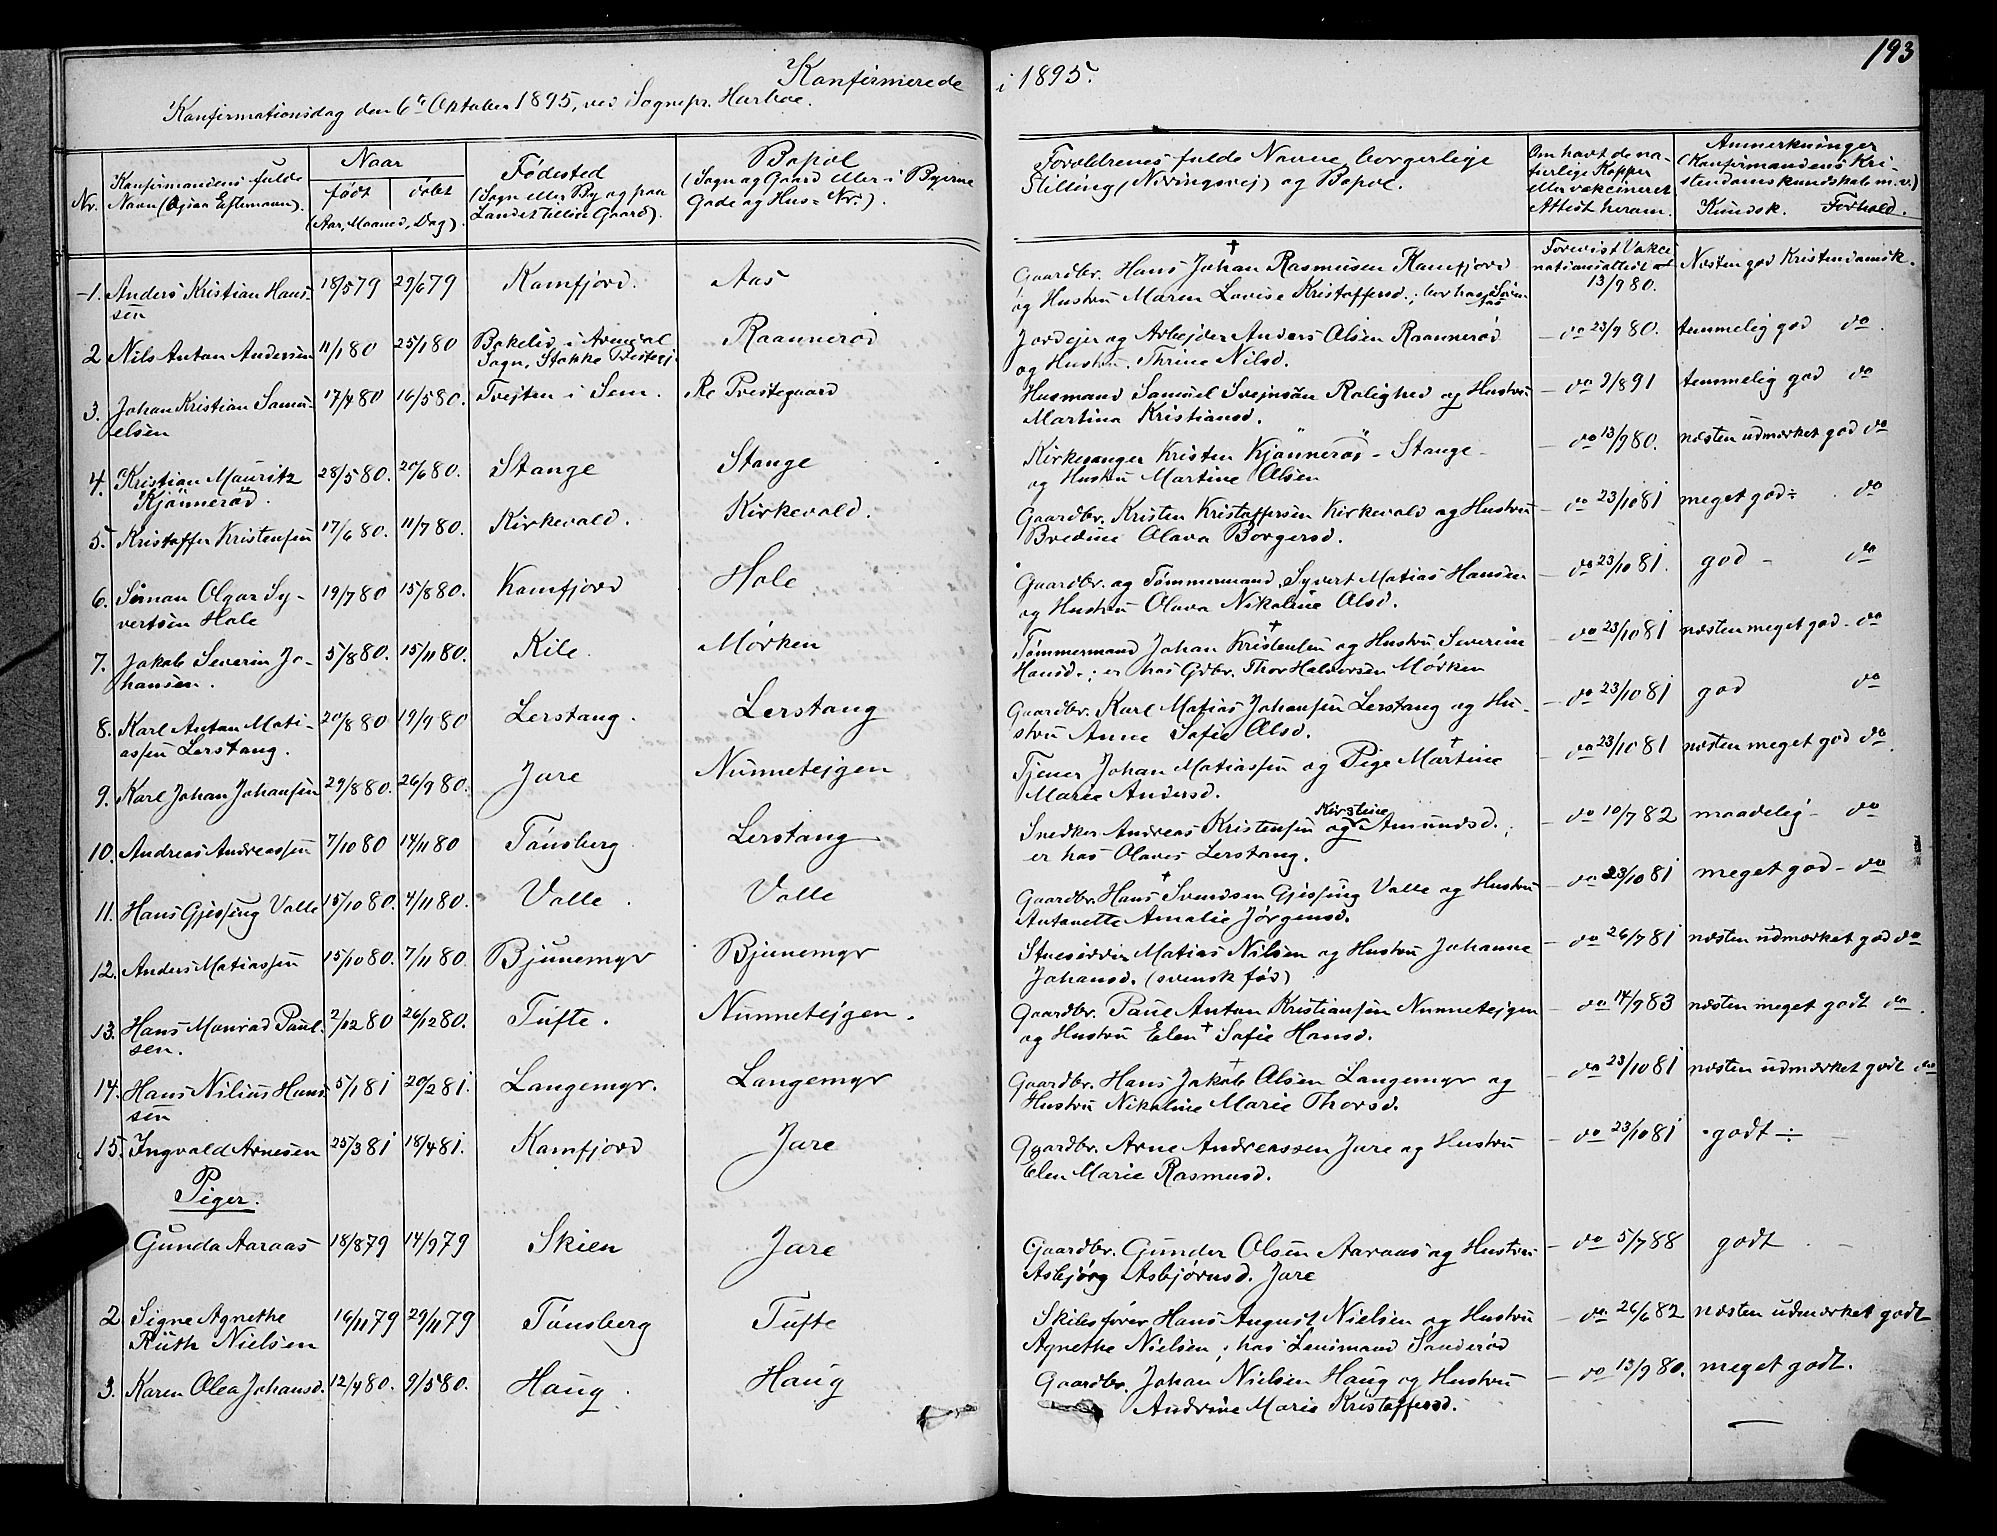 193
Konfirmerede i 1895.
Konfirmationsdag den 6te Oktober 1895, ved Sognepr. Harboe.
Nr.
Konfirmandens fulde
Navn (ogsaa Efternavn).
Naar
født døbt
(Aar, Maaned, Dag).
Fødested
(Sogn eller By og paa
Landet tillige Gaard).
Bopæl
(Sogn og Gaard eller i Byerne
Gade og Hus-Nr.).
Forældrenes fulde Navne, borgerlige
Stilling, (Næringsvej) og Bopæl.
Om havt de na-
turlige Kopper
eller vakcineret
Attest herom.
Anmerkninger
(Konfirmandens Kri-
stendomskundskab m.v.)
Kundsk. Forhold.
1. Anders Kristian Han-
sen
18/5 79 29/6 79 Kamfjord. Aas
Gaardbr. Hans Johan † Rasmusen Kamfjord
og Hustru Maren Lovise Kristoffersd.; bor hos Sören
Aas
Forevist Vakci
nationsattest af
13/9 80.
Næsten god Kristendomsk.
2 Nils Anton Andersen 11/1 80 25/1 80 Bakeliv i Arendal
Sogn, Stokke Prestegj. Raannerød
Jordejer og Arbejder Anders Olsen Raannerød
og Hustru Thrine Nilsd.
— do 23/9 80. temmelig god do
3. Johan Kristian Samu-
elsen
17/4 80 16/5 80. Tvejten i Sem. Re Prestegaard
Husmand Samuel Svejnsön Rolighed og Hustru
Martina Kristiansd.
— do 9/8 91 temmelig god do
4. Kristian Mauritz
Kjønnerød.
28/5 80. 20/6 80. Stange Stange
Kirkesanger Kristen Kjönnerød - Stange -
og Hustru Martine Olsen
— do 13/9 80. næsten udmærket god do
5. Kristoffer Kristensen 17/6 80. 11/7 80. Kirkevold. Kirkevold.
Gaardbr. Kristen Kristoffersen Kirkevold og Hustru
Bredine Olava Borgersd.
— do 23/10 81 meget god ÷ do
6. Simon Olgar Sy-
vertsen Hole
19/7 80 15/8 80. Kamfjord Hole
Gaardbr. og Tømmermand, Syvert Matias Hansen
og Hustru Olava Nikoline Olsd.
— do 23/10 81. god - do
7. Jakob Severin Jo-
hansen.
5/8 80. 15/11 80. Kile Mørken
Tømmermand Johan Kristensen † og Hustru Severine
Hansd.; er hos Gdbr. Thor Halvorsen Mørken
— do 23/10 81 næsten meget god - do
8. Karl Anton Mati-
assen Lerstang.
20/8 80 19/9 80 Lerstang. Lerstang
Gaardbr. Karl Matias Johansen Lerstang og Hu-
stru Anne Sofie Olsd.
— do 23/10 81 god do
9. Karl Johan Johansen 29/8 80. 26/9 80. Jare Nunnetejgen
Tjener Johan Matiassen og Pige Martine †
Marie Andersd.
— do 23/10 81 næsten meget god do
10. Andreas Andreassen 7/10 80 14/11 80 Tønsberg Lerstang
Snedker Andreas Kristensen og Kirstine Amundsd.;
er hos Olaves Lerstang.
— do 10/7 82 maadelig - do
11. Hans Gjessing Valle 15/10 80. 4/11 80. Valle. Valle
Gaardbr. Hans † Svendsen Gjessing Valle og Hustru
Antonette Amalie Jørgensd.
— do 23/10 81 meget god - do
12. Anders Matiassen 15/10 80. 7/11 80. Bjunemyr Bjunemyr
Stuesidder Matias Nilsen og Hustru Johanne
Johansd. (svensk fød)
— do 26/7 81 næsten udmærket god do
13. Hans Monrad Paul-
sen.
2/12 80 26/12 80. Tufte. Nunnetejgen.
Gaardbr. Paul Anton Kristiansen Nunnetejgen
og Hustru Elen † Sofie Hansd.
— do 14/9 83 næsten meget godt do
14. Hans Nilius Han-
sen
5/1 81 20/2 81. Langemyr. Langemyr
Gaardbr. Hans Jakob † Olsen Langemyr og
Hustru Nikoline Marie Thorsd.
— do 23/10 81 næsten udmærket godt do
15. Ingvald Arnesen 25/3 81 18/4 81. Kamfjord Jare
Gaardbr. Arne Andreassen Jare og Hustru
Elen Marie Rasmusd.
— do 23/10 81 godt ÷
Piger.
Gunda Aaraas 18/8 79 14/9 79 Skien Jare
Gaardbr. Gunder Olsen Aaraas og Hustru
Asbjörg Asbjörnsd. Jare
— do 5/7 88 godt
2 Signe Agnethe
Ruth Nielsen
16/11 79 29/11 79 Tønsberg Tufte
Skibsfører Hans August Nielsen og Hustru
Agnethe Nielsen; hos Lensmand Sanderød
— do 26/6 82 næsten udmærket godt
3. Karen Olea Johansd. 12/4 80. 9/5 80. Haug. Haug
Gaardbr. Johan Nielsen Haug og Hustru
Andrine Marie Kristoffersd.
— do 13/9 80. meget godt.